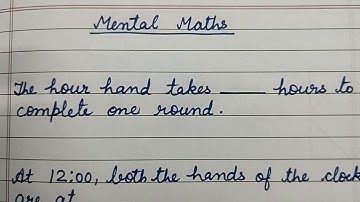 Mental Maths
The hour hand takes ____ hours to
complete one round.
At 12:00, both the hands of the clock
are at